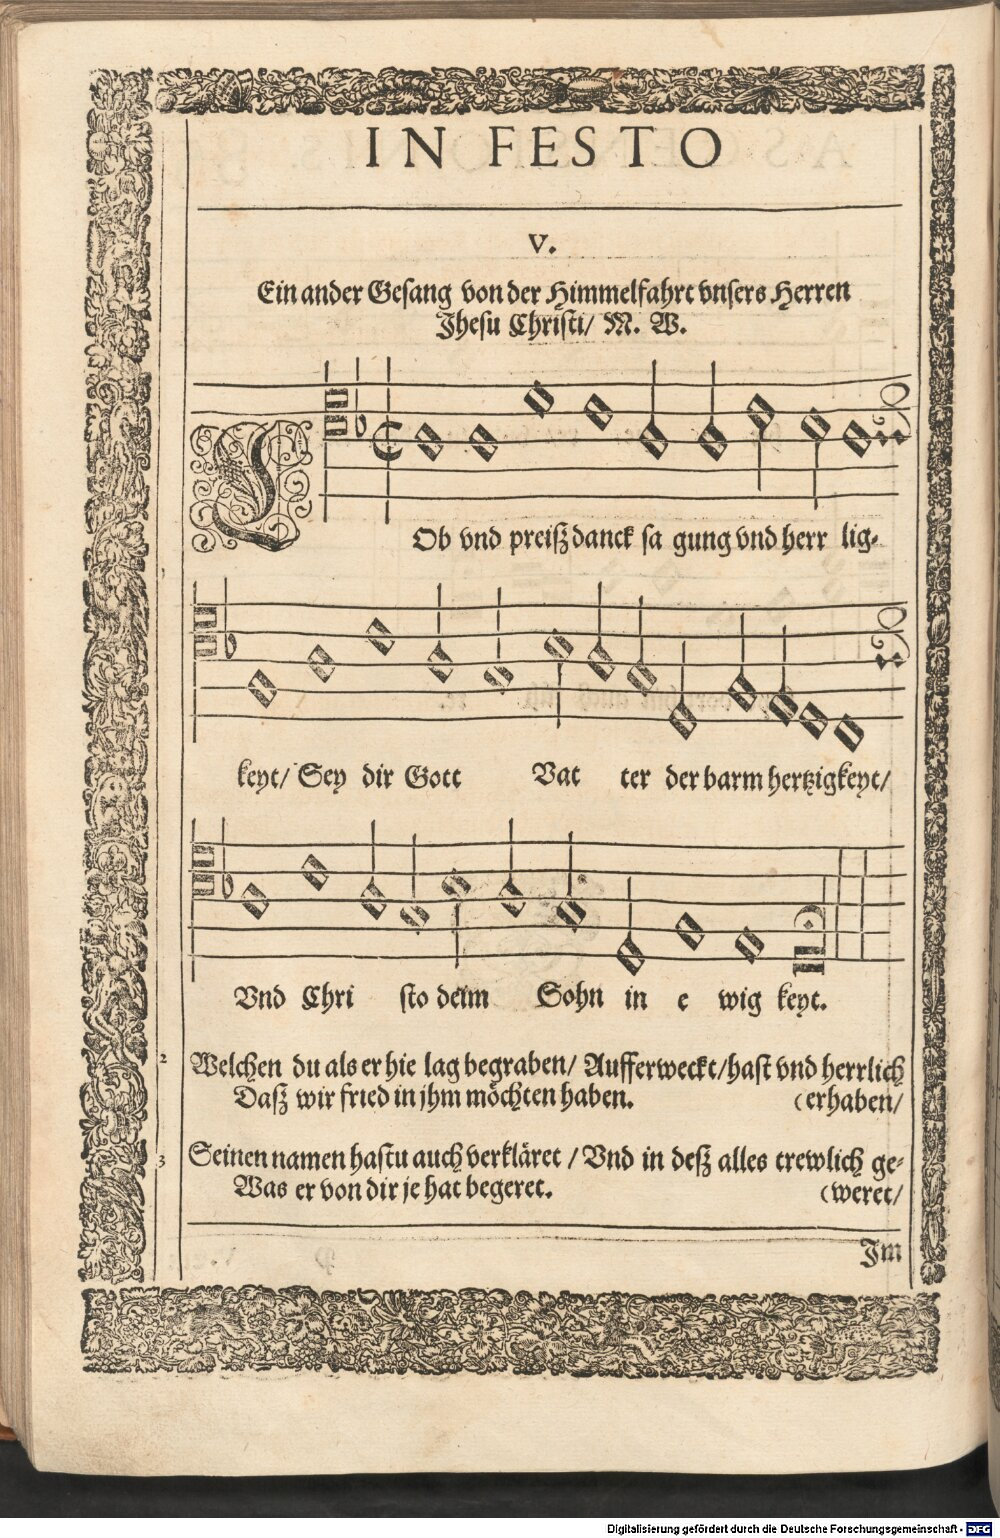 IN FESTO
V.
Ein ander Gesang von der Himmelfahrt vnsers Herren
Jhesu Christi/ M. W.
LOb vnd preiß danck sa gung vnd herr lig-
keyt/ Sey dir Gott Vat ter der barm hertzigkeyt/
Vnd Chri sto deim Sohn in e wig keyt.
2 Welchen du als er hie lag begraben/ Aufferweckt/ hast vnd herrlich
Daß wir fried in jhm möchten haben. (erhaben/
3 Seinen namen hastu auch verkläret / Vnd in deß alles trewlich ge-
Was er von dir je hat begeret. (weret/
Jm
Digitalisierung gefördert durch die Deutsche Forschungsgemeinschaft - DFG